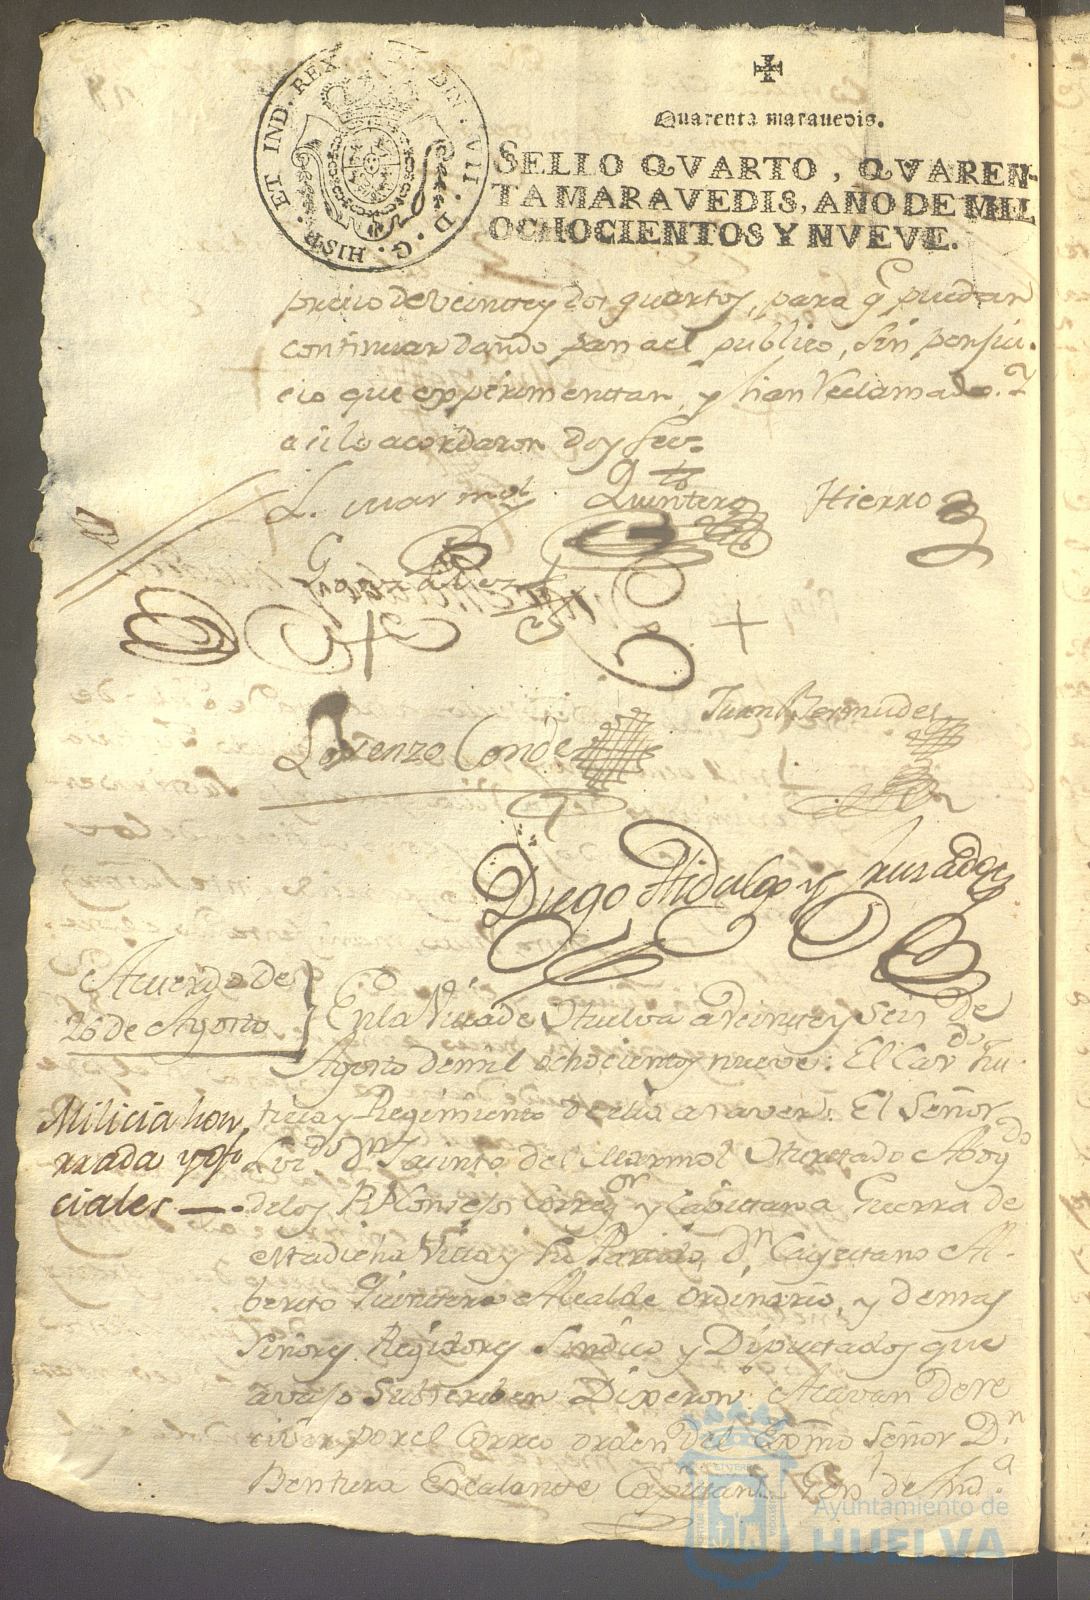 HISP. ET IND. REX
DIN. VII. D. G.
Quarenta maravedis.
SELLO QVARTO, QVAREN-
TA MARAVEDIS, AÑO DE MIL
OCHOCIENTOS Y NVEVE.
precio de veinte y dos quartos, para q puedan
continuar dando pan a el publico, sin perjui-
cio que experimentan, y han reclamado. Y
asi lo acordaron doy fee=
L. Marmol Quintero Hierro
Gonzalez
Lorenzo Conde
Juan Bermudez
Diego Hidalgo y Jurado
Acuerdo de
26 de Agosto
En la Villa de Huelva a veinte y seis de
Agosto de mil ochocientos nueve: El Cavdo Jus-
ticia y Regimiento de ella a saver: El Señor
Milicia hon
rrada y ofi
ciales
Licdo Dn Jacinto del Marmol Hurtado Abogdo
de los Rs Consejos Corregor y Capitan a Guerra de
esta dicha Villa y su Partido, Dn Cayetano Al-
berto Quintero Alcalde ordinario, y demas
Señores Regidores Sindico y Diputados que
avajo subscriben Dixeron: Acavan de re
civir por el Correo orden del Exmo Señor Dn
Bentura Escalante Capitan Gen de And.a
Ayuntamiento de
HUELVA